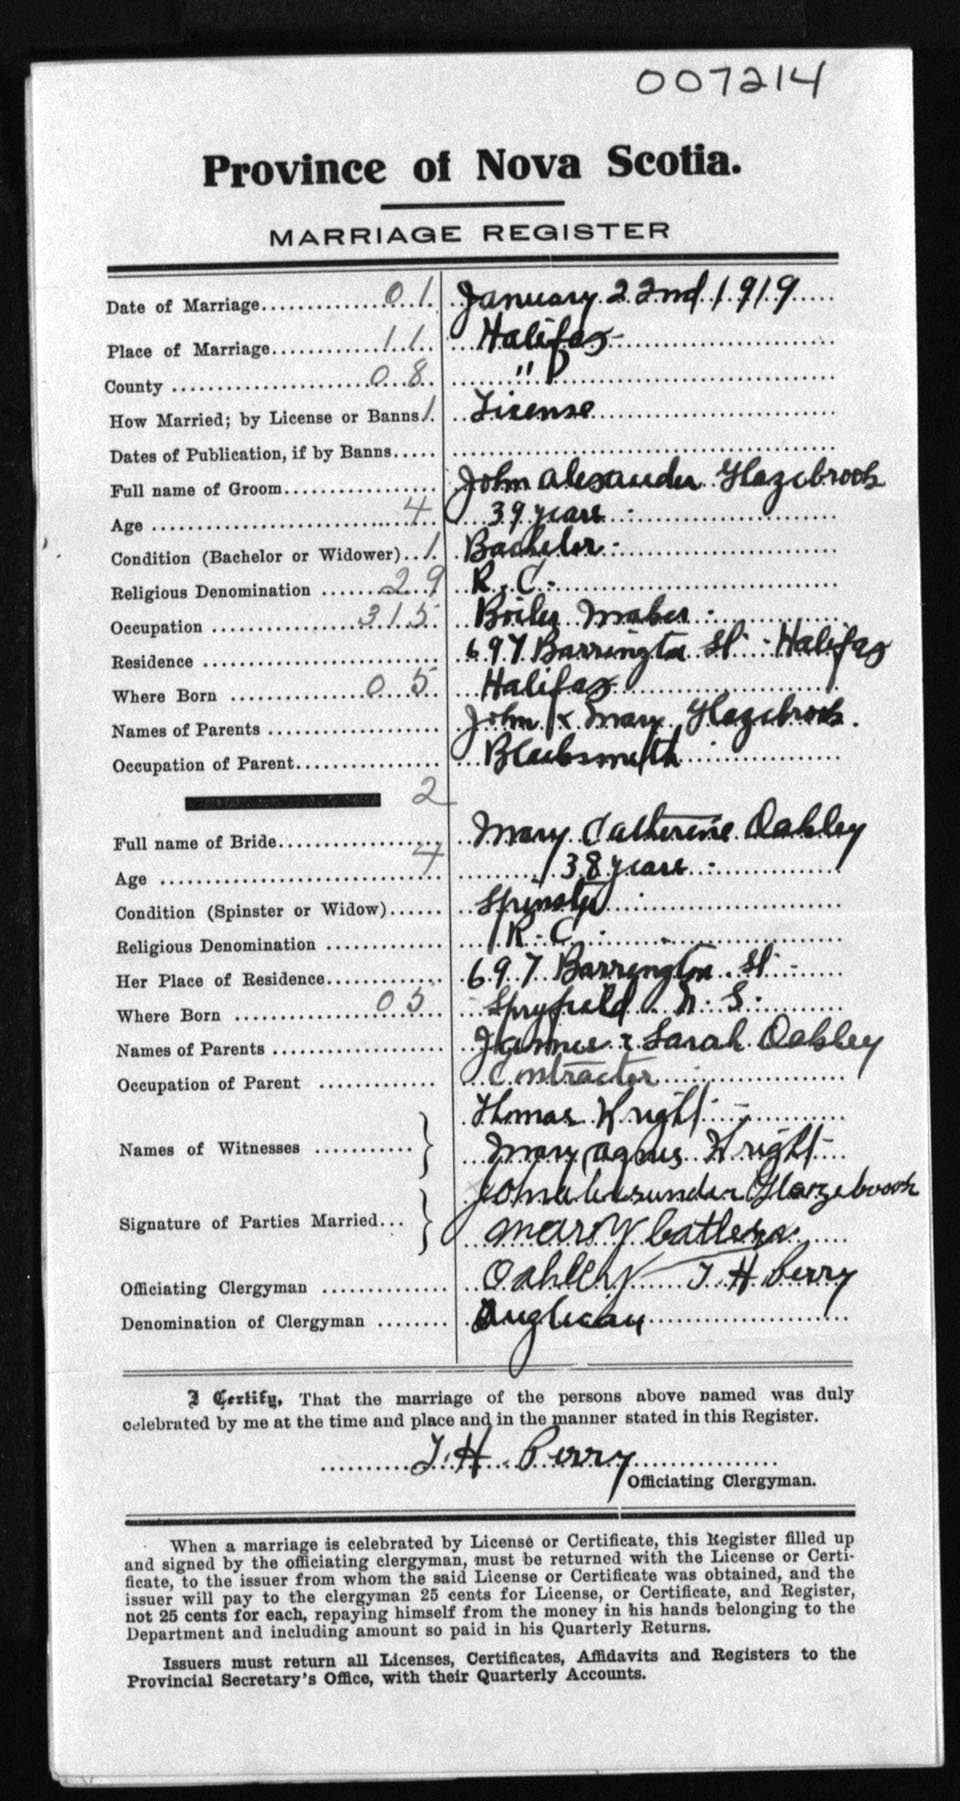 007214
Province of Nova Scotia.
MARRIAGE REGISTER
Date of Marriage 01 January 22nd 1919
Place of Marriage 11 Halifax
County 08 "
How Married; by License or Banns 1 License
Dates of Publication, if by Banns
Full name of Groom John Alexander Glazebrook
Age 4 39 years
Condition (Bachelor or Widower) 1 Bachelor
Religious Denomination 29 R.C.
Occupation 315 Boiler Maker
Residence 697 Barrington St Halifax
Where Born 05 Halifax
Names of Parents John & Mary Glazebrook.
Occupation of Parent Blacksmith
2
Full name of Bride Mary Catherine Oakley
Age 4 38 years
Condition (Spinster or Widow) Spinster
Religious Denomination R.C.
Her Place of Residence 697 Barrington St
Where Born 05 Spryfield N.S.
Names of Parents & Sarah Oakley
Occupation of Parent Contractor
Thomas Wright
Names of Witnesses Mary Agnes Wright
John Alexander Glazebrook
Signature of Parties Married Mary
Oakley
Officiating Clergyman T H Perry
Denomination of Clergyman Anglican
I Certify, That the marriage of the persons above named was duly
celebrated by me at the time and place and in the manner stated in this Register.
T. H. Perry
Officiating Clergyman.
When a marriage is celebrated by License or Certificate, this Register filled up
and signed by the officiating clergyman, must be returned with the License or Certi-
ficate, to the issuer from whom the said License or Certificate was obtained, and the
issuer will pay to the clergyman 25 cents for License, or Certificate, and Register,
not 25 cents for each, repaying himself from the money in his hands belonging to the
Department and including amount so paid in his Quarterly Returns.
Issuers must return all Licenses, Certificates, Affidavits and Registers to the
Provincial Secretary's Office, with their Quarterly Accounts.